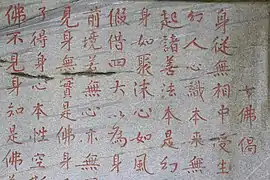 七佛偈
身從無相中受生
幻人心識本來無
起諸善法本是幻
身如聚沫心如風
假借四大以為身
前境若無心亦無
見身無實是佛身
了得身心本性空斯
佛不見身知是佛